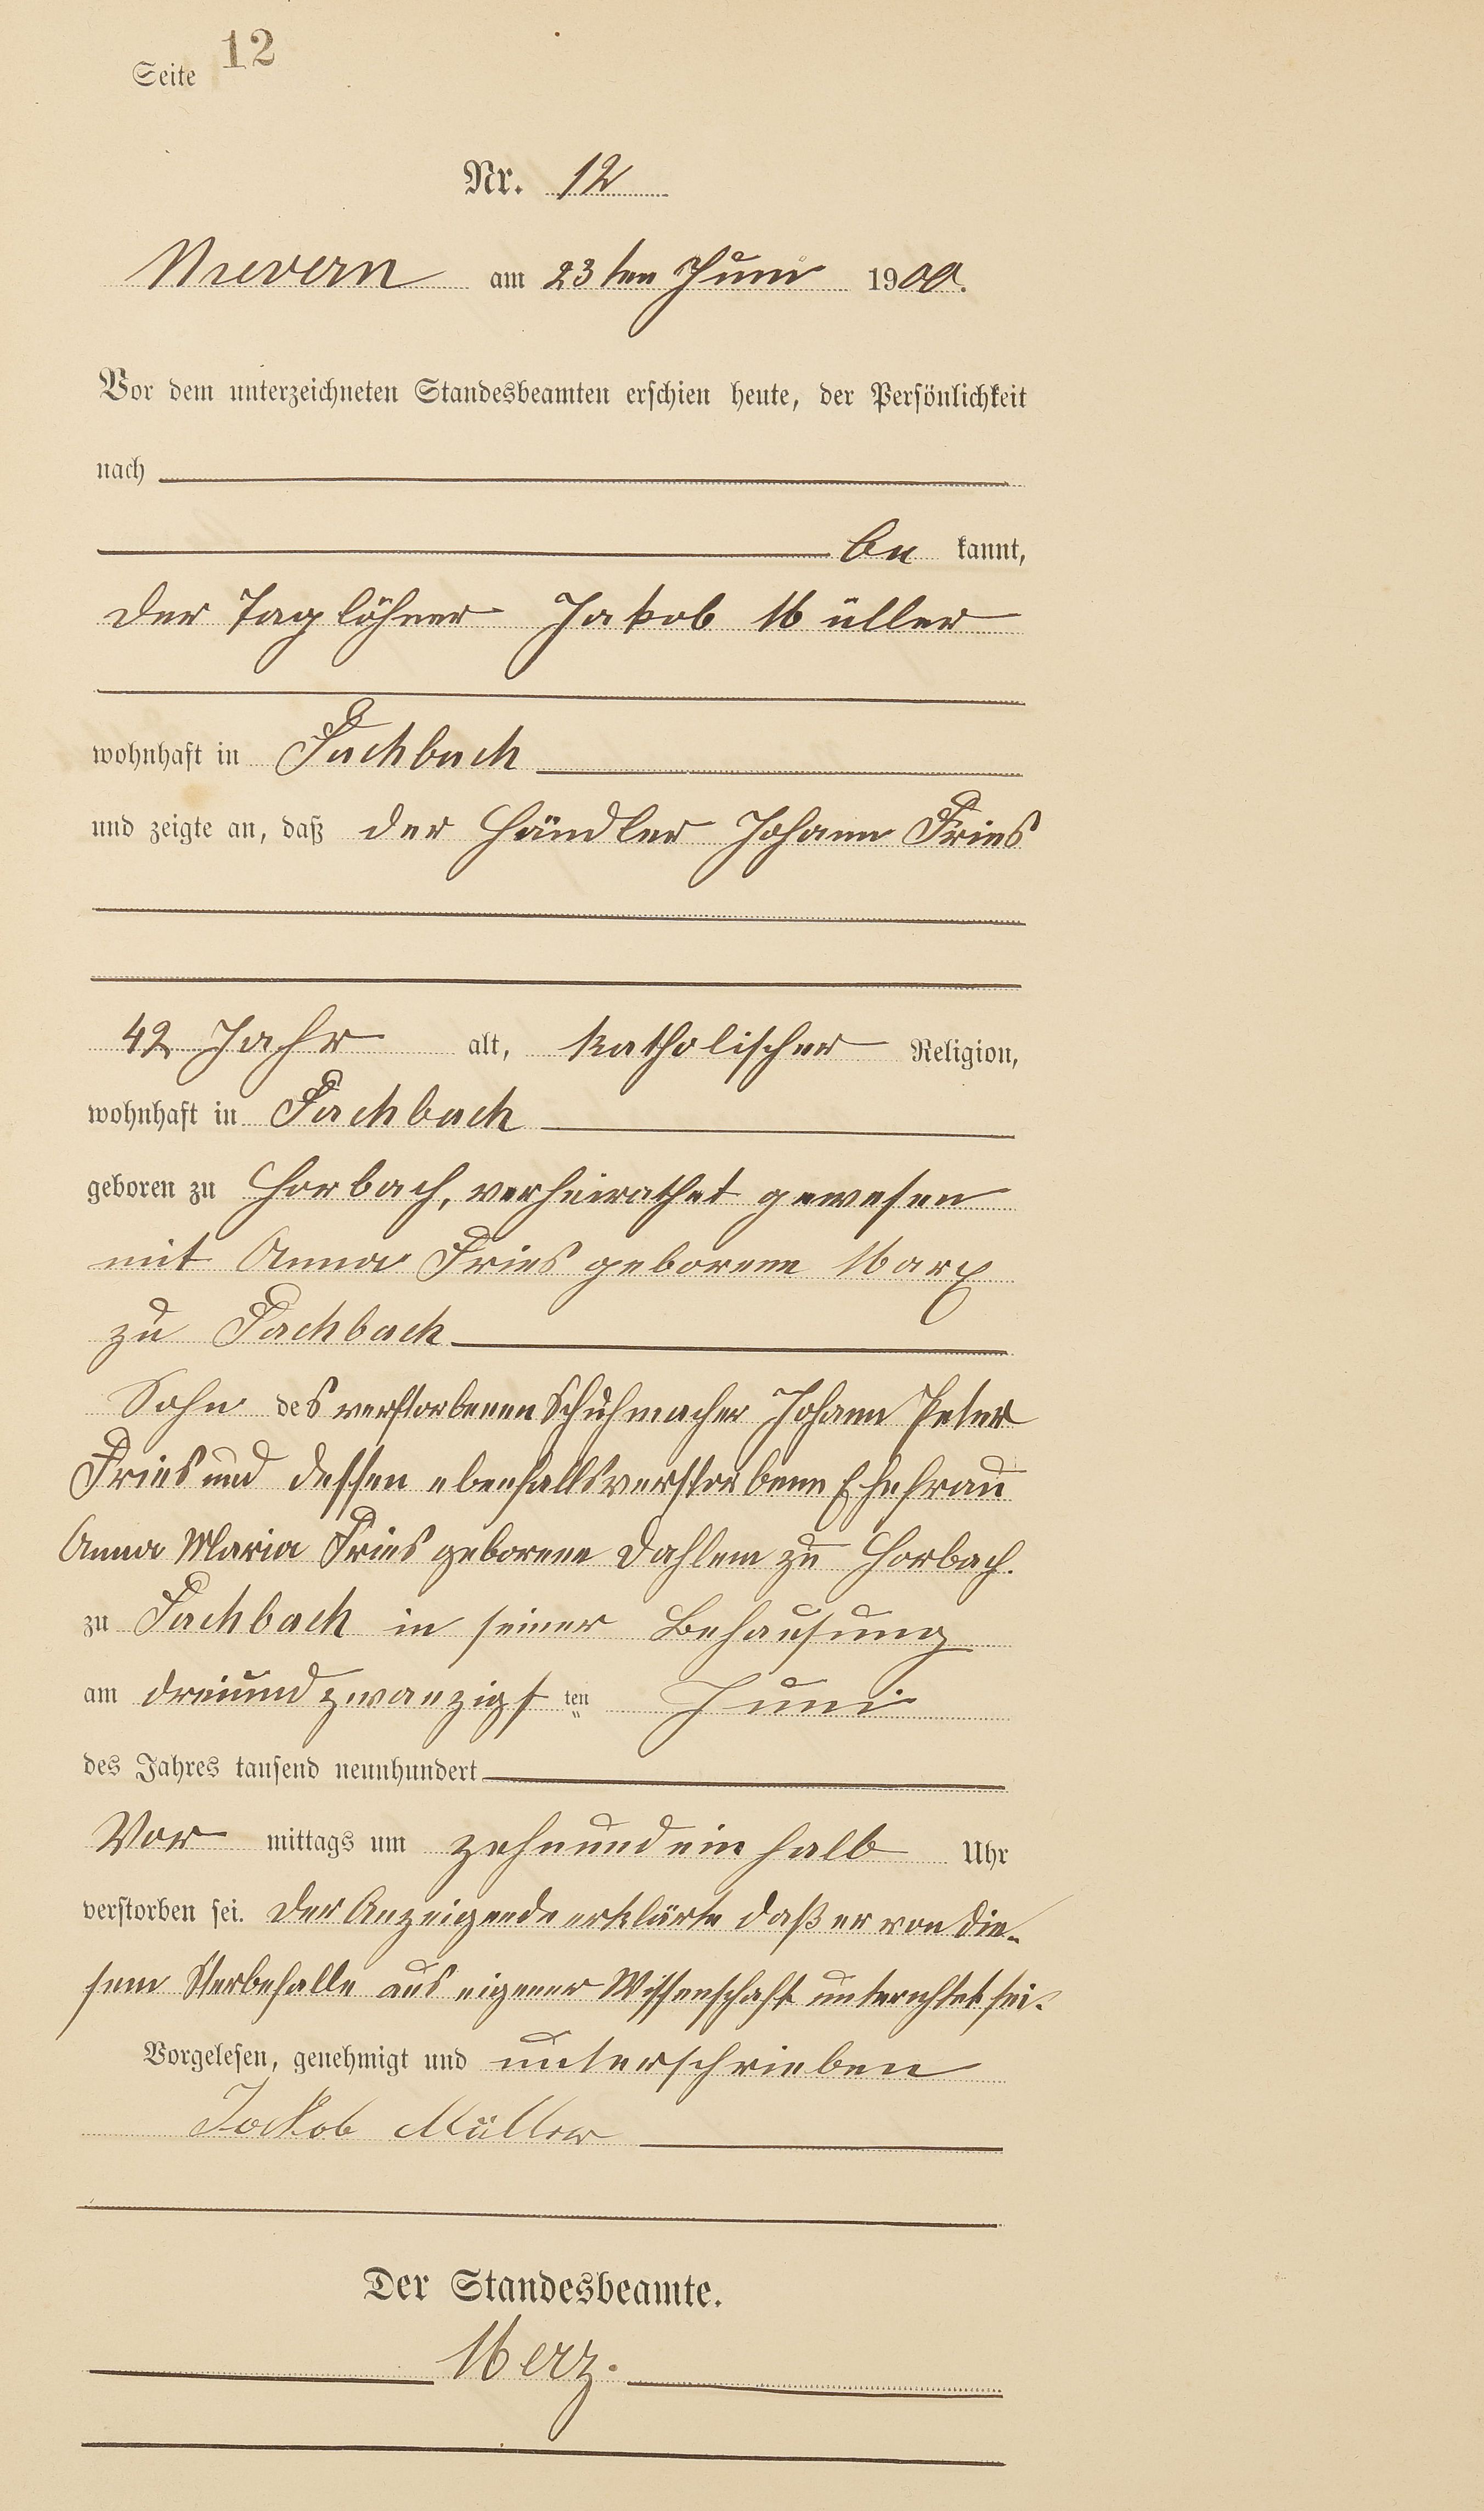 Seite 12
Nr. 12
Nievern am 23ten Juni 1900.
Vor dem unterzeichneten Standesbeamten erschien heute, der Persönlichkeit
nach
be kannt,
der Taglöhner Jakob Müller
wohnhaft in Fachbach
und zeigte an, daß der Händler Johann Fries
42 Jahr alt, katholischer Religion,
wohnhaft in Fachbach
geboren zu Horbach, verheirathet gewesen
mit Anna Fries geborene Marx
zu Fachbach
Sohn des verstorbenen Schuhmacher Johann Peter
Fries und dessen ebenfalls verstorbene Ehefrau
Anna Maria Fries geborene Dahlem zu Horbach.
zu Fachbach in seiner Behausung
am dreiundzwanzigst ten Juni
des Jahres tausend neunhundert
Vor mittags um zehnundeinhalb Uhr
verstorben sei. Der Anzeigende erklärte daß er von die-
sem Sterbefalle aus eigener Wissenschaft unterichtet sei.
Vorgelesen, genehmigt und unterschrieben
Jackob Müller
Der Standesbeamte.
Merz.